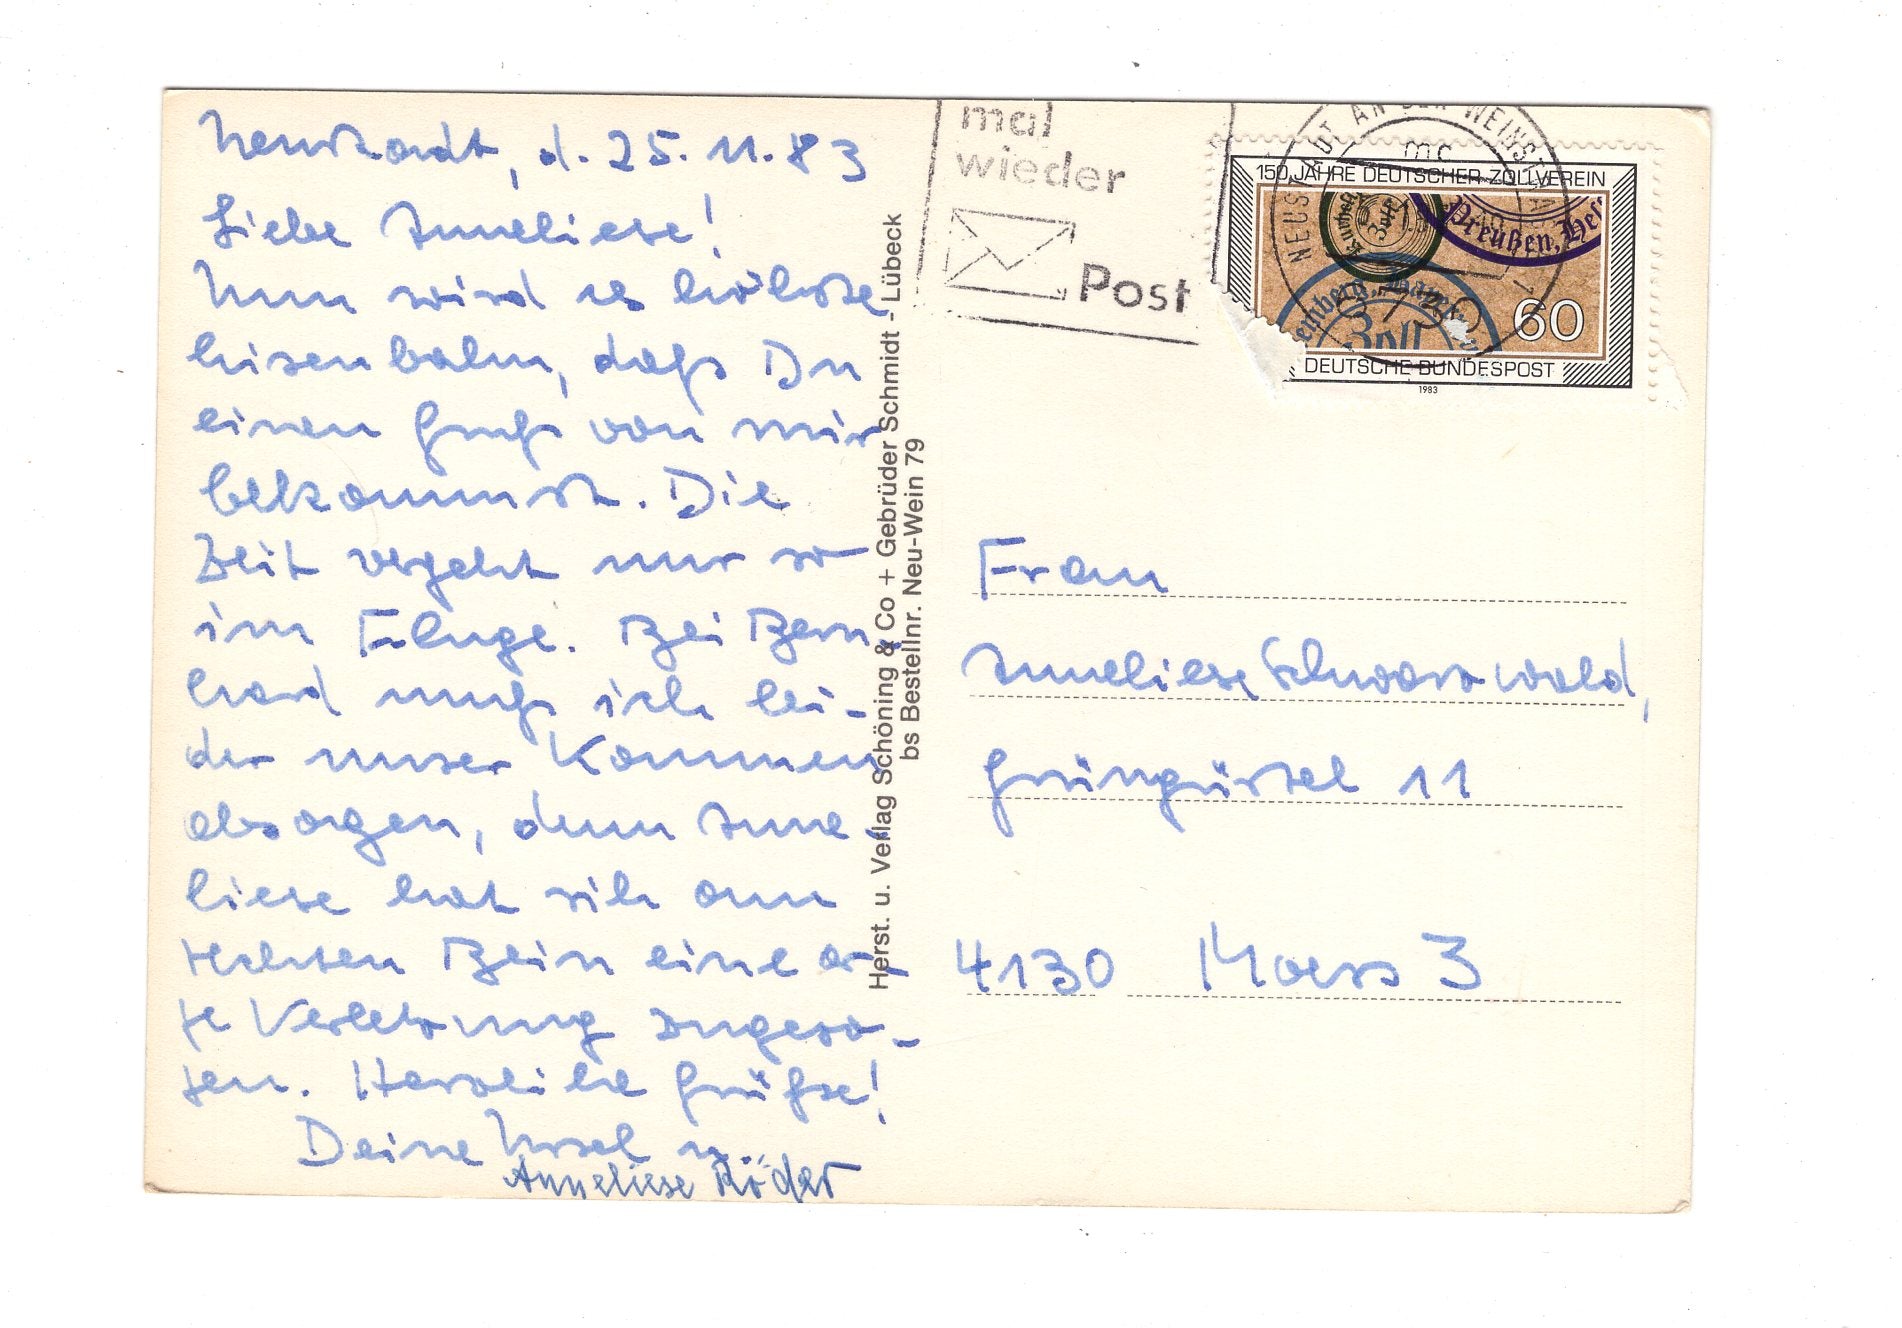 Neustadt, d. 25.11.83
Liebe Anneliese!
Nun wird es höchste
Eisenbahn, daß Du
einen Gruß von mir
bekommst. Die
Zeit vergeht nur so
im Fluge. Bei Bern-
hard muß ich lei-
der unser Kommen
absagen, denn Anne-
liese hat sich am
rechten Bein eine
Verletzung zugezo-
gen. Herzliche Grüße!
Deine Ursel u.
Anneliese Röder
Herst. u. Verlag Schöning & Co + Gebrüder Schmidt - Lübeck
bs Bestellnr. Neu-Wein 79
mal
wieder
Post
NEUSTADT AN DER WEINSTRASSE 1
mc
6730
150 JAHRE DEUTSCHER ZOLLVEREIN
Preußen, Hes
Zoll
60
DEUTSCHE BUNDESPOST
1983
Frau
Anneliese Schwarzwald,
Grüngürtel 11
4130 Moers 3